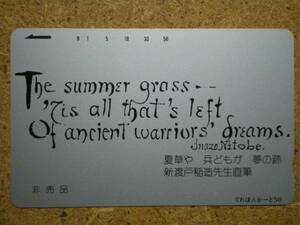 0 1 5 10 30 50
The summer grass--
'Tis all that's left
Of ancient warriors' dreams.
Inazo Nitobe.
夏草や 兵どもが 夢の跡
新渡戸稲造先生直筆
非売品
てれほんかーど50